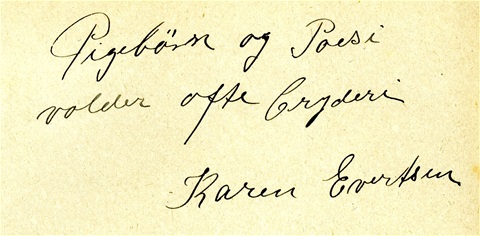 Pigebörn og Poesi
volder ofte Bryderi
Karen Evertsen